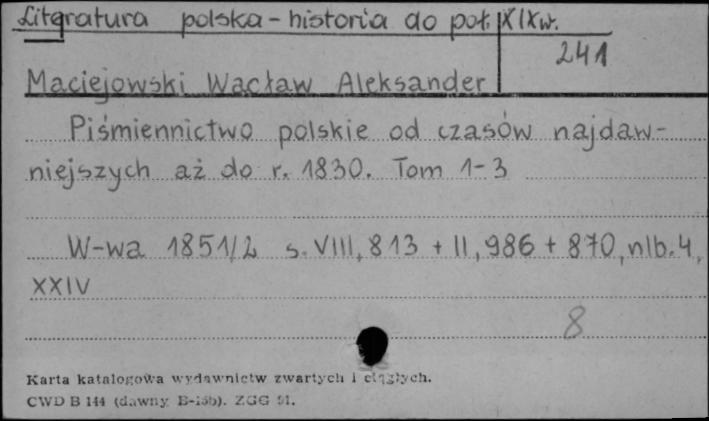 Literatura polska - historia do poł. XIX w.
241
Maciejowski Wacław Aleksander
Piśmiennictwo polskie od czasów najdaw-
niejszych aż do r. 1830. Tom 1-3
W-wa 1851/2 s. VIII, 813 + II, 986 + 870, nlb. 4,
XXIV
8
Karta katalogowa wydawnictw zwartych i ciągłych.
CWD B 144 (dawny B-15b). ZGG 91.